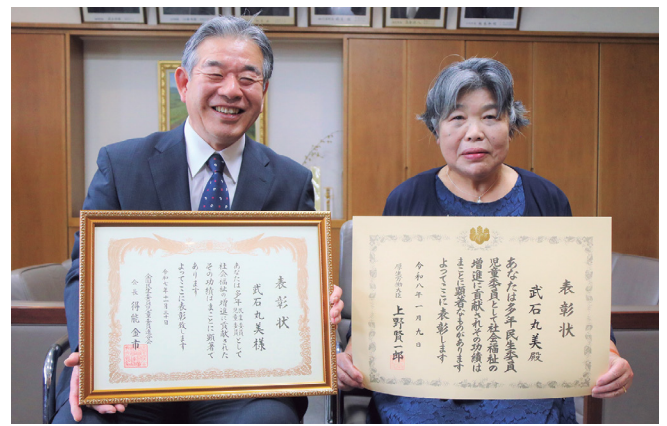 表彰状
武石丸美様
あなたは多年民生委員児童委員として
社会福祉の増進に貢献された
その功績はまことに顕著で
あります
よってここに表彰致します
令和七年
全国民生委員児童委員連合会
会長 得能金市
表彰状
武石丸美殿
あなたは多年民生委員
児童委員として社会福祉の
増進に貢献されその功績は
まことに顕著なものがあります
よってここに表彰します
令和八年一月九日
厚生労働大臣 上野賢一郎